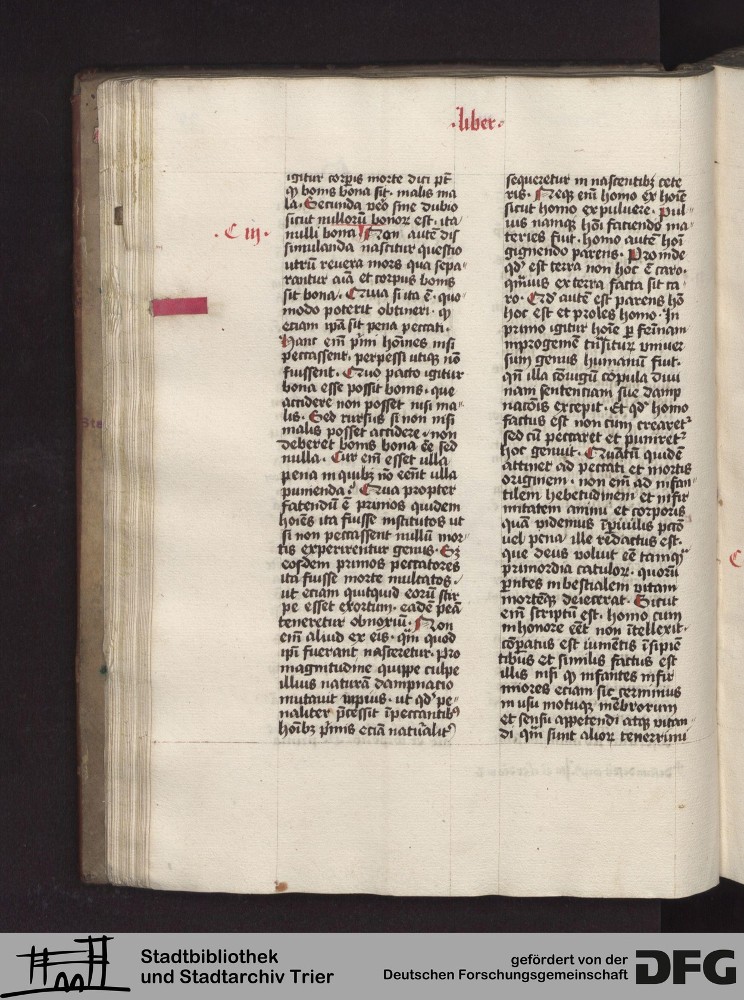 ·liber·
igitur corpis morte dici pt̄
ꝙ bonis bona sit· malis ma
la· Secunda ṽo sine dubio
sicut nulloꝝ bonoꝝ est· ita
nulli bona Non autē dis
· C iij ·
simulanda nascitur questio
utrū reuera mors qua sepa
rantur aīa et corpus bonis
sit bona· Quia si ita ē· quo
modo poterit obtineri· ꝙ
eciam ip̄a sit pena peccati·
Hanc em̄ pim̄ hoīnes nisi
peccassent· perpessi utiqꝫ nō
fuissent· Quo pacto igitur
bona esse possit bonis· que
accidere non posset nisi ma
lis· Sed rursus si non nisi
malis posset accidere· non
deberet bonis bona ēē sed
nulla· Cur em̄ esset ulla
pena in quibꝫ nō eēnt ulla
punienda? Qua propter
fatendū ē primos quidem
hoīes ita fuisse institutos ut
si non peccassent nullū mor
tis experirentur genus· Sꝫ
eosdem primos peccatores
ita fuisse morte multatos·
ut eciam quitquid eorū stir
pe esset exortum· eadē pea
teneretur obnoxiū· Non
em̄ aliud ex eis· qm̄ quod
ip̄i fuerant nasceretur· Pro
magnitudine quippe culpe
illius naturā dampnacio
mutauit in peius· ut qd' pe
naliter p̄cessit ī peccantibꝫ
hoībꝫ p̄mis eciā naturalit'
sequeretur in nascentibꝫ cete
ris· Neqꝫ em̄ homo ex hoīē
sicut homo ex puluere· Pul
uis namqꝫ hōi faciendo ma
teries fuit· homo autē hoī
gignendo parens· Proinde
qd' est terra non hoc ē caro·
qm̄uis ex terra facta sit ca
ro· Qd' autē est parens hō
hoc est et proles homo· In
primo igitur hoīe ꝑ femīnam
in progeniē trāsitur' uniuer
sum genus humanū fuit·
qn̄ illa cōiugū copula diui
nam sentenciam sue damp
nacōis excepit· Et qd' homo
factus est non cum crearet'
sed cū peccaret et puniret'
hoc genuit· Quantū quidē
attinet ad peccati et mortis
originem· non em̄ ad infan
tilem hebetudinem et infir
mitatem animi et corporis
quā videmus ī ꝑuulis pctō
uel pena ille redactus est·
que deus voluit eē tamqꝫ
primordia catuloꝝ· quorū
ꝑentes in bestialem vitam
mortēqꝫ deiecerat· Sicut
em̄ scriptū est· homo cum
in honore eēt non ītellexit·
cōpatus est iumētis īsipiē
tibus et similis factus est
illis nisi ꝙ infantes infir
miores eciam sic cernimus
in usu motuqꝫ mēbrorum
et sensu appetendi atqꝫ vitan
di qm̄ sunt alioꝝ tenerrimi
Stadtbibliothek
und Stadtarchiv Trier
gefördert von der
Deutschen Forschungsgemeinschaft
DFG